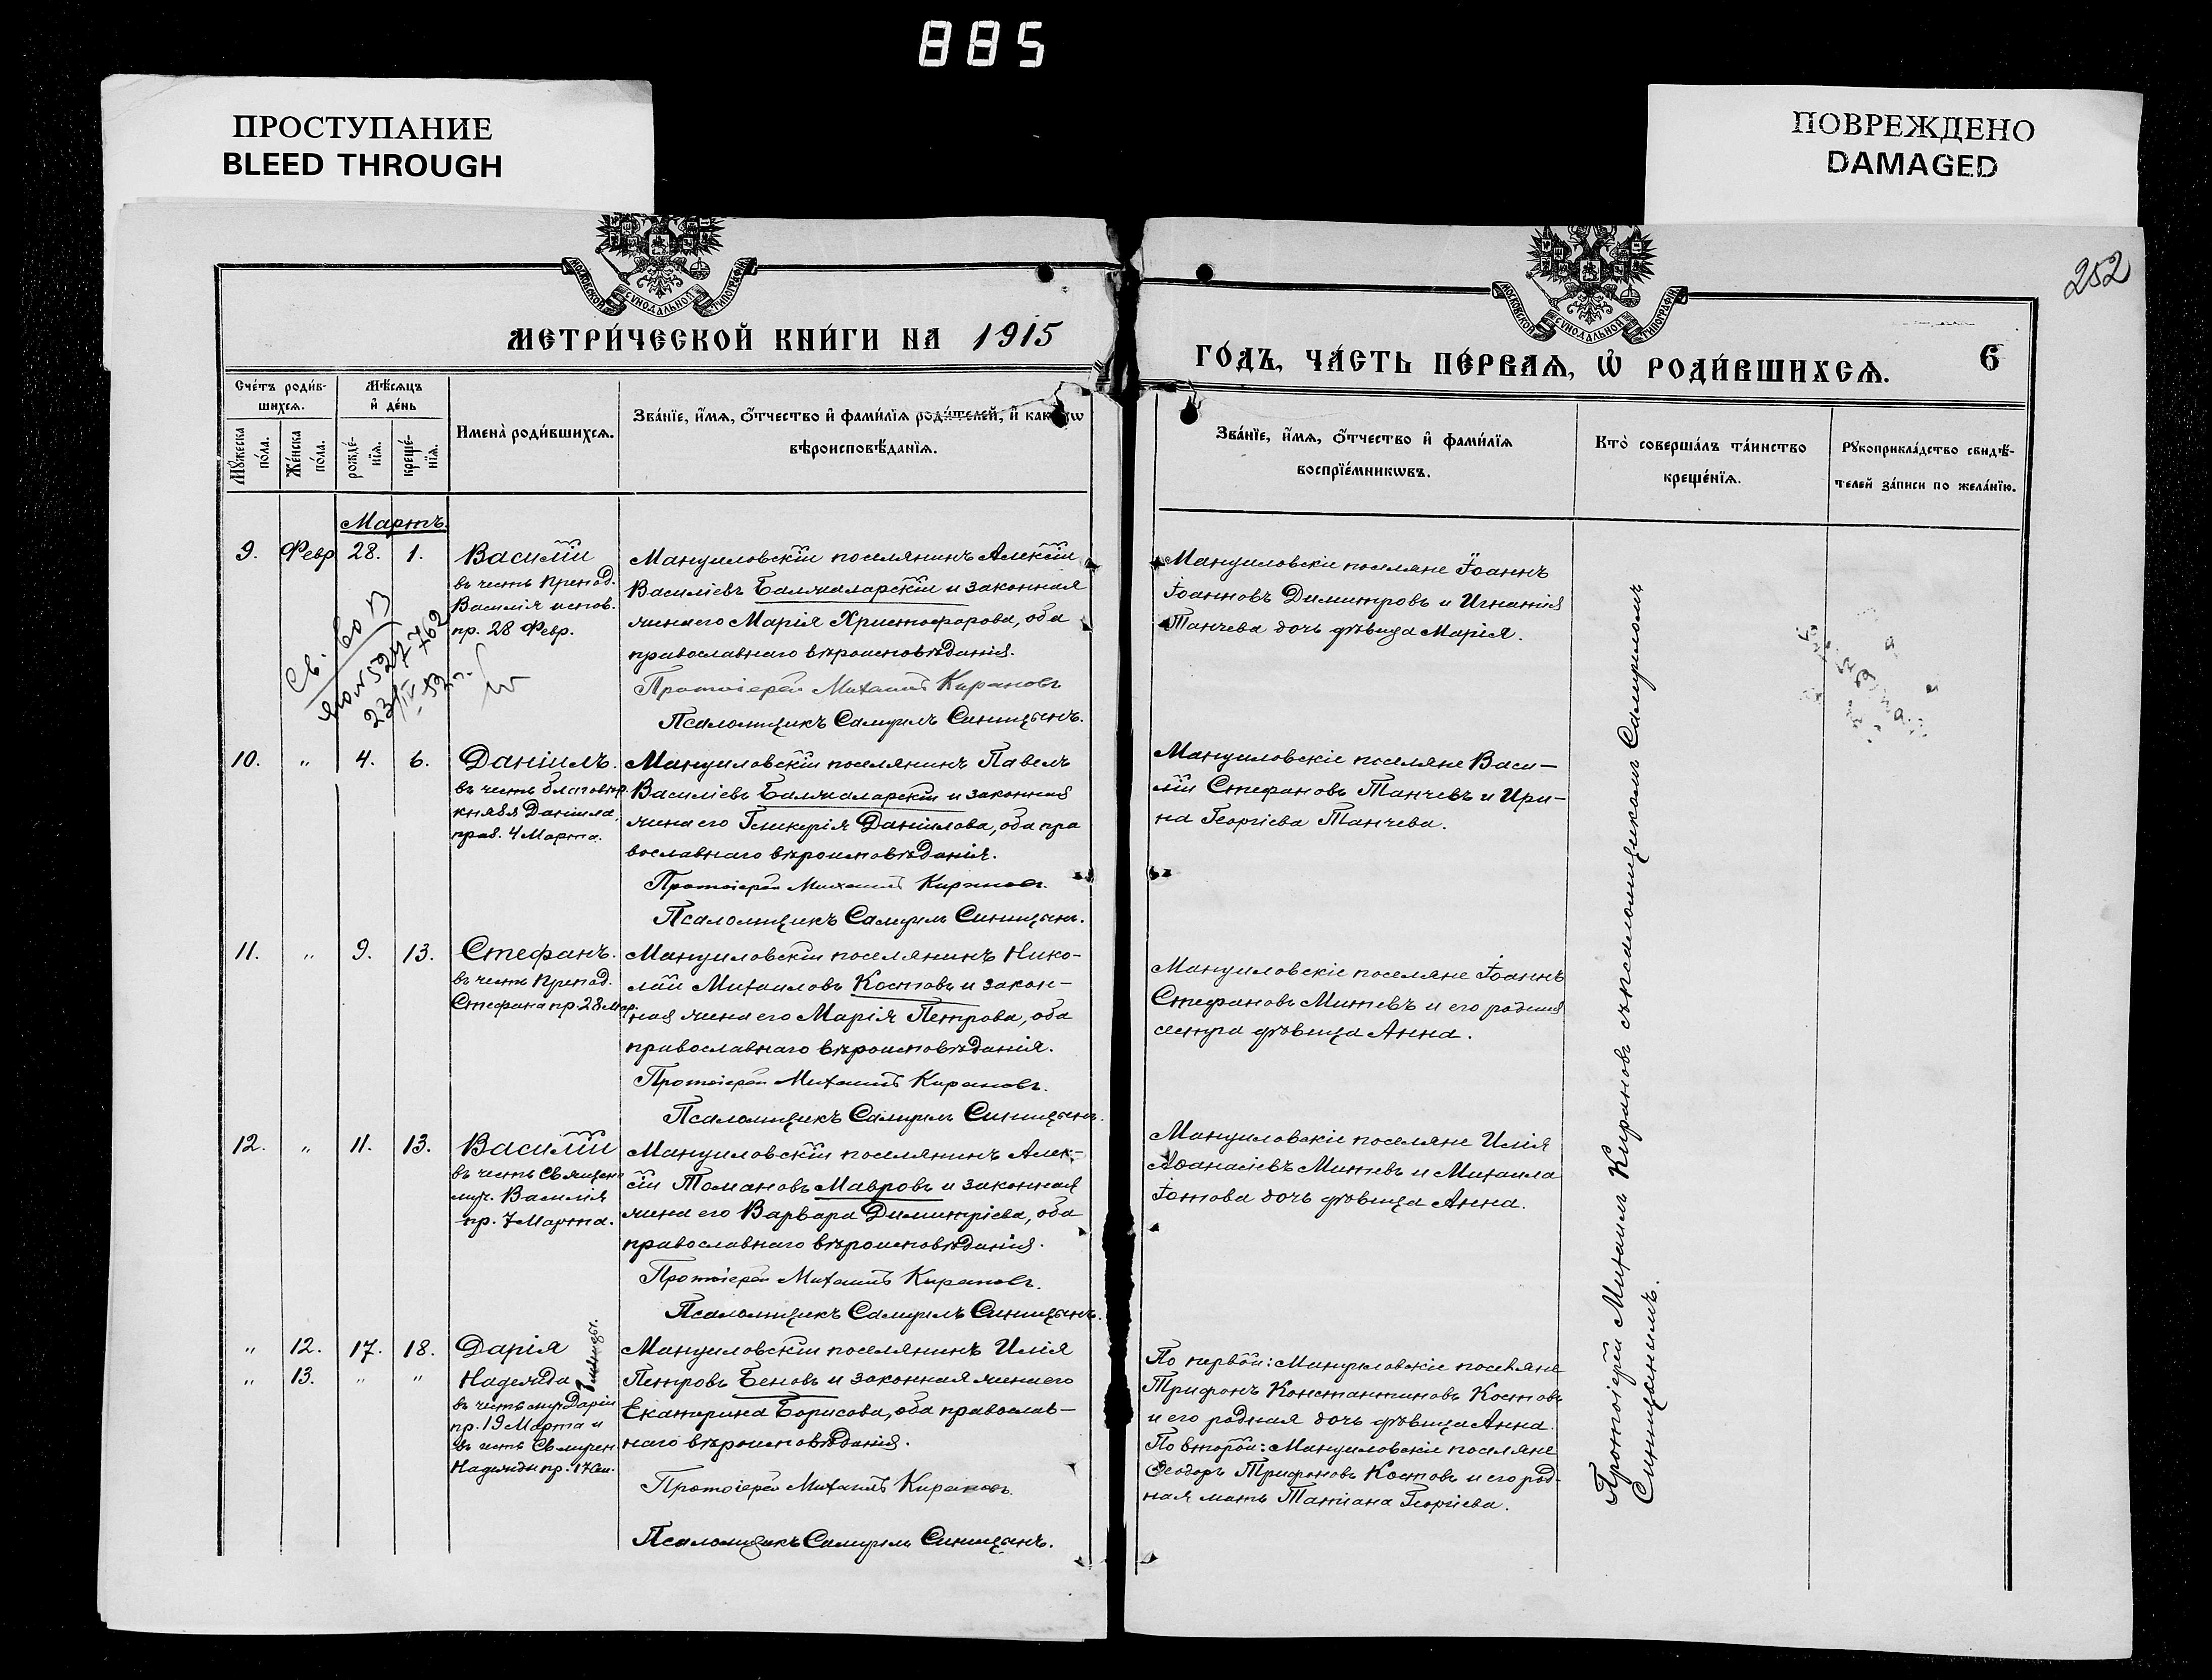 885
ПРОСТУПАНИЕ
BLEED THROUGH
ПОВРЕЖДЕНО
DAMAGED
252
МОСКОВСКОЙ СѴНОДАЛЬНОЙ ТИПОГРАФІИ
МОСКОВСКОЙ СѴНОДАЛЬНОЙ ТИПОГРАФІИ
МЕТРИ́ЧЕСКОЙ КНИ́ГИ НА 1915
ГО́ДЪ, ЧА́СТЬ ПЕ́РВАѦ, Ѡ҆ РОДИ́ВШИХСѦ.
6
Сче́тъ роди́в-
шихсѧ.
Мѣ́сѧцъ
и҆ де́нь
Мꙋ́жеска
по́ла.
Же́нска
по́ла.
рожде́-
нїѧ.
креще́-
нїѧ.
Имена̀ роди́вшихсѧ.
Зва́нїе, и҆́мѧ, ѻ҆́тчество и҆ фами́лїѧ роди́телей, и҆ как
вѣроисповѣ́данїѧ.
Зва́нїе, и҆́мѧ, ѻ҆́тчество и҆ фами́лїѧ
воспрїе́мникѡвъ.
Кто̀ соверша́лъ та́инство
креще́нїѧ.
Рꙋкоприкла́дство свидѣ́-
телей за́писи по жела́нїю.
Мартъ.
9. Февр 28. 1. Василій
въ честь Препод.
Василія испов.
пр. 28 Февр.
Мануиловскій поселянинъ Алексій
Василіевъ Балжаларскій и законная
жена его Марія Христофорова, оба
православнаго вѣроисповѣданія.
Протоіерей Михаилъ Кирановъ
Псаломщикъ Самуилъ Синицынъ.
Мануиловскіе поселяне Іоаннъ
Іоанновъ Димитровъ и Игнатія
Танчева дочь дѣвица Марія.
10. " 4. 6. Даніилъ.
въ честь благовѣр.
князя Даніила,
праз. 4 Марта.
Мануиловскій поселянинъ Павелъ
Василіевъ Балжаларскій и законная
жена его Гликерія Даніилова, оба пра
вославнаго вѣроисповѣданія.
Протоіерей Михаилъ Кирановъ.
Псаломщикъ Самуилъ Синицынъ.
Мануиловскіе поселяне Васи-
лій Стефановъ Танчевъ и Ири-
на Георгіева Танчева.
11. " 9. 13. Стефанъ.
въ честь Препод.
Стефана пр. 28 Мар.
Мануиловскій поселянинъ Нико-
лай Михаиловъ Костовъ и закон-
ная жена его Марія Петрова, оба
православнаго вѣроисповѣданія.
Протоіерей Михаилъ Кирановъ.
Псаломщикъ Самуилъ Синицынъ.
Мануиловскіе поселяне Іоаннъ
Стефановъ Митевъ и его родная
сестра дѣвица Анна.
12. " 11. 13. Василій
въ честь Священ
муч. Василія
пр. 7 Марта.
Мануиловскій поселянинъ Алек-
сій Томановъ Мавровъ и законная
жена его Варвара Димитріева, оба
православнаго вѣроисповѣданія.
Протоіерей Михаилъ Кирановъ.
Псаломщикъ Самуилъ Синицынъ.
Мануиловскіе поселяне Илія
Аѳанасіевъ Митевъ и Михаила
Іотова дочь дѣвица Анна.
" 12. 17. 18. Дарія
" 13. " " Надежда
близнецы.
въ честь муч. Даріи
пр. 19 Марта и
въ честь Св. мучен
Надежды пр. 17 Сен.
Мануиловскій поселянинъ Илія
Петровъ Беновъ и законная жена его
Екатерина Борисова, оба православ-
наго вѣроисповѣданія.
Протоіерей Михаилъ Кирановъ.
Псаломщикъ Самуилъ Синицынъ.
По первой: Мануиловскіе поселяне
Трифонъ Константиновъ Костовъ
и его родная дочь дѣвица Анна.
По второй: Мануиловскіе поселяне
Ѳеодоръ Трифоновъ Костовъ и его род-
ная мать Татіана Георгіева.
Протоіерей Михаилъ Кирановъ съ псаломщикомъ Самуиломъ
Синицынымъ.